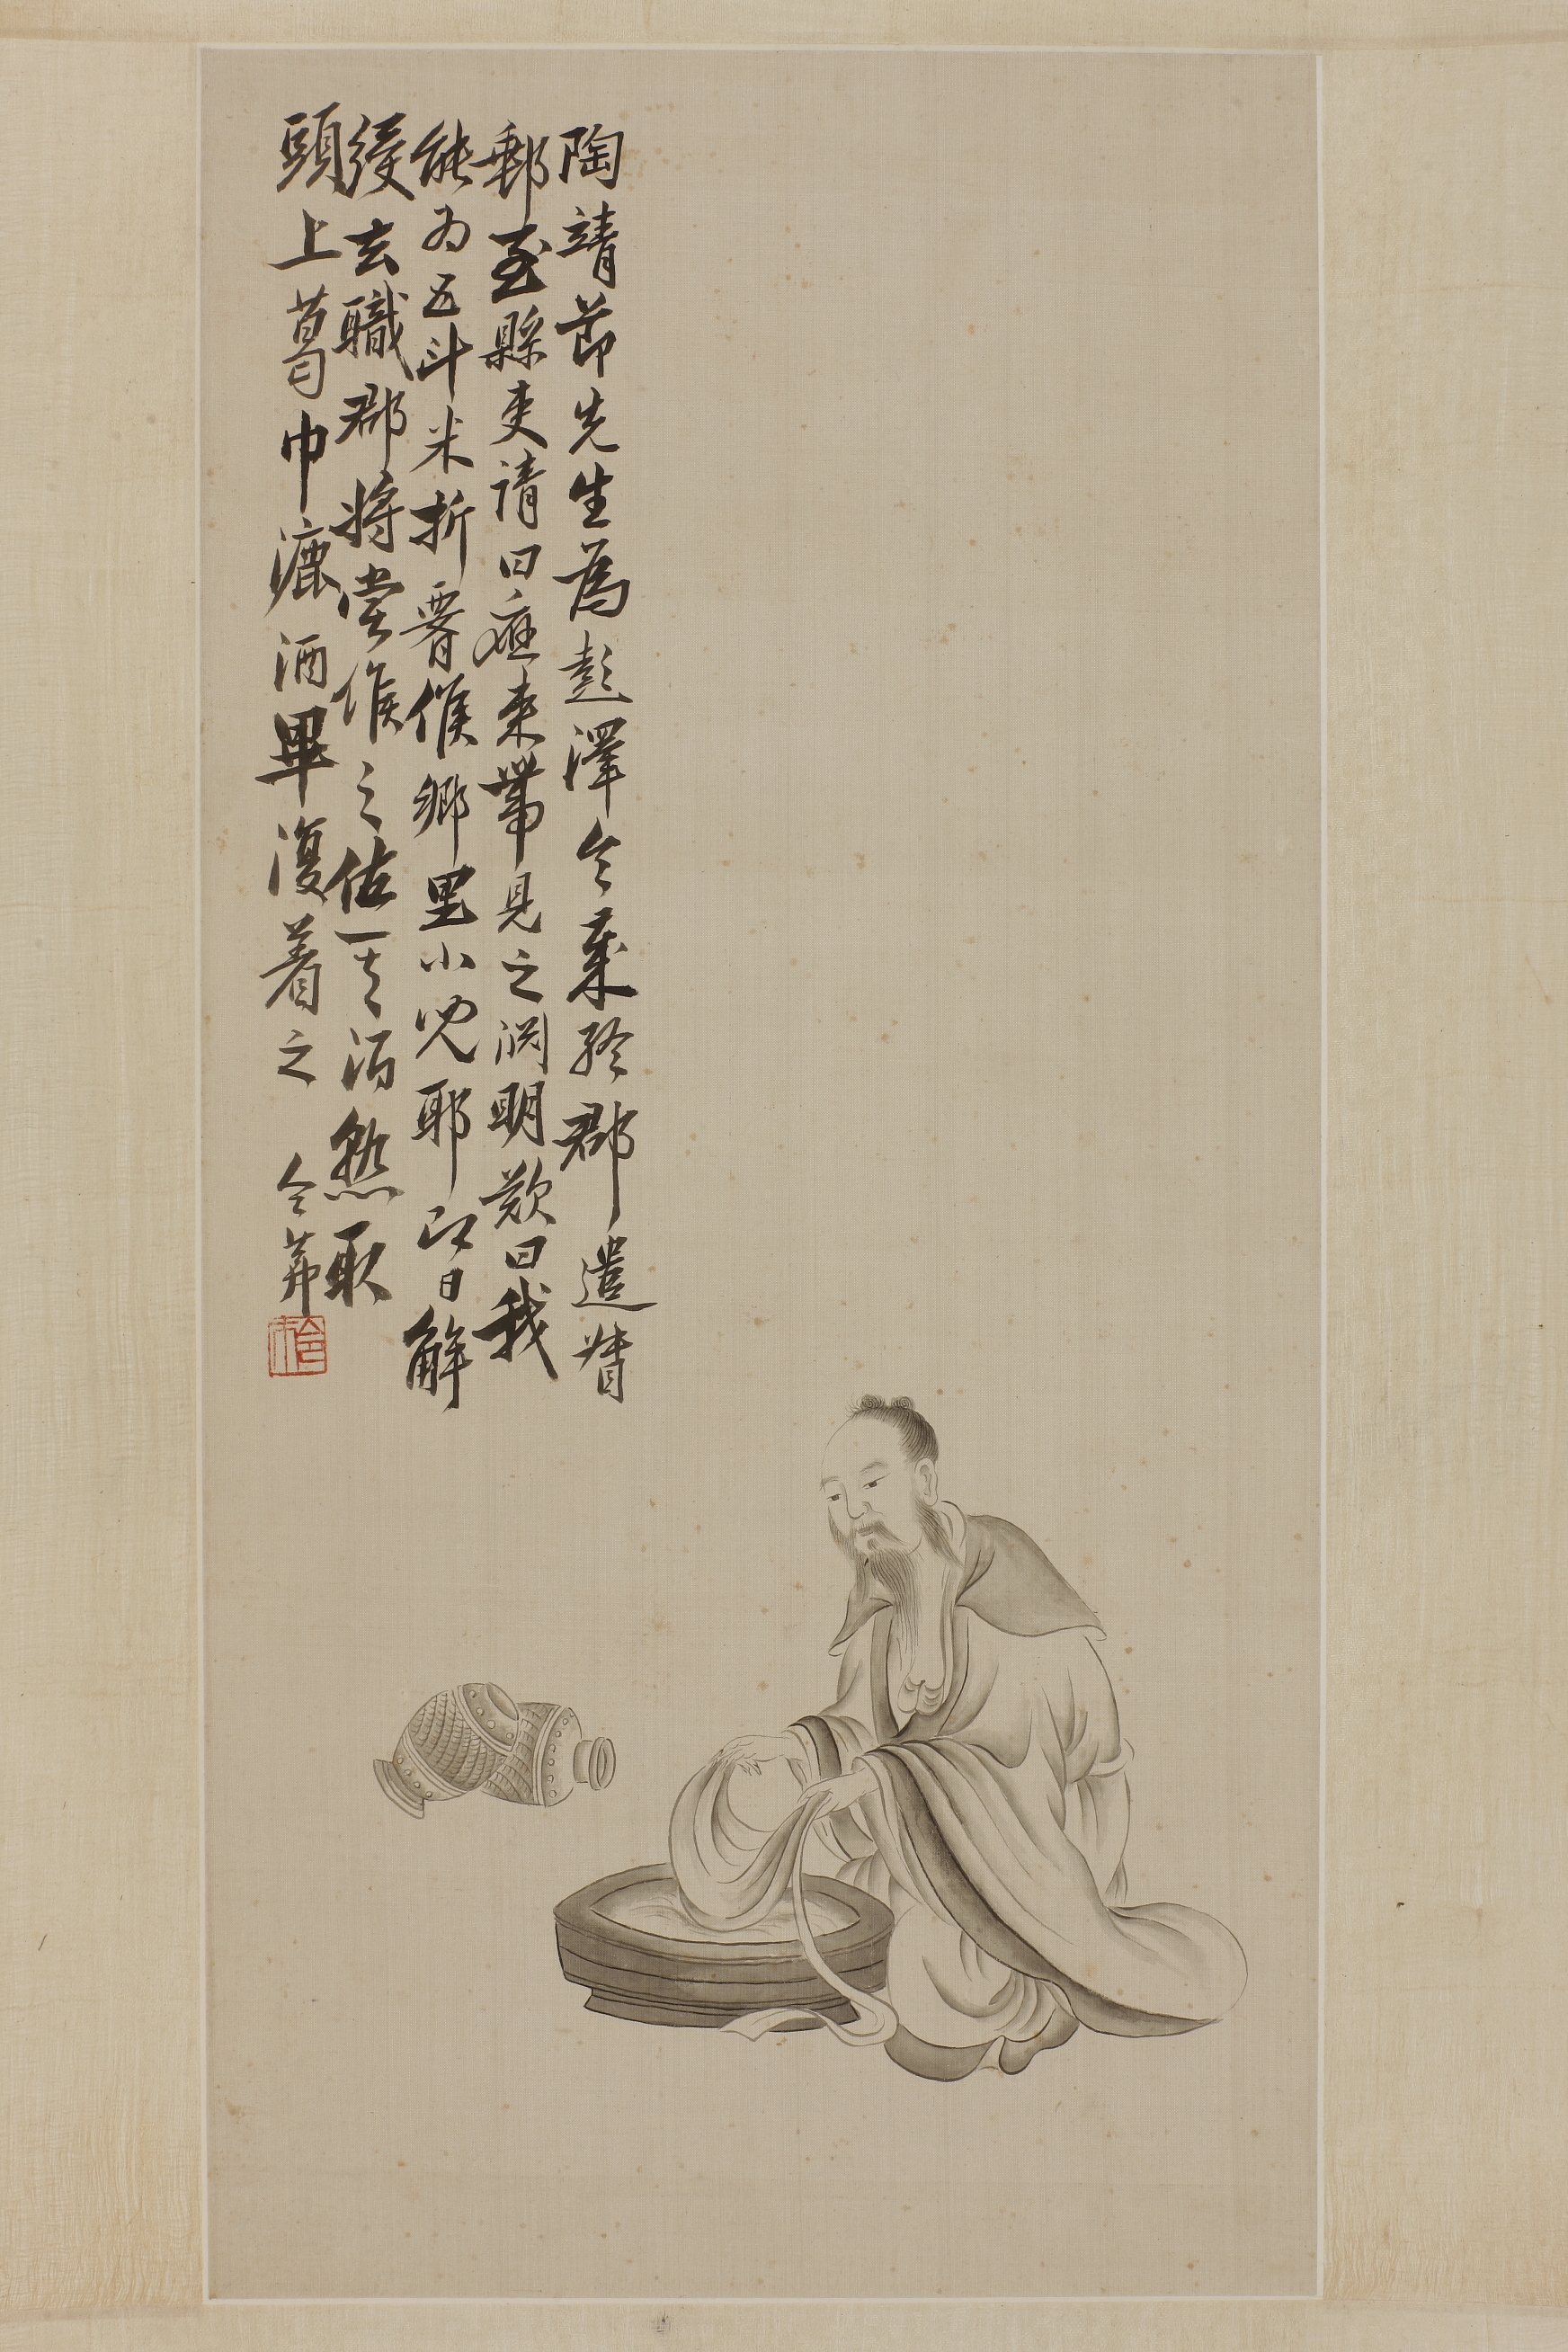 陶靖節先生為彭澤令歲終郡遣督
郵至縣吏請曰應束帶見之淵明歎曰我
能为五斗米折腰候鄉里小兒耶即日解
綬去職郡將嘗候之值其酒熟取
頭上葛巾漉酒畢復着之 令茀